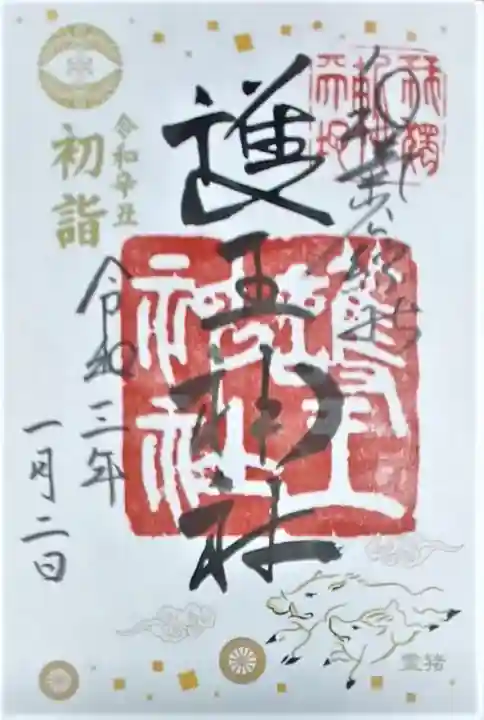 和氣公綜社
護王神社
令和辛丑
初詣
令和三年
一月二日
護王神社
霊猪